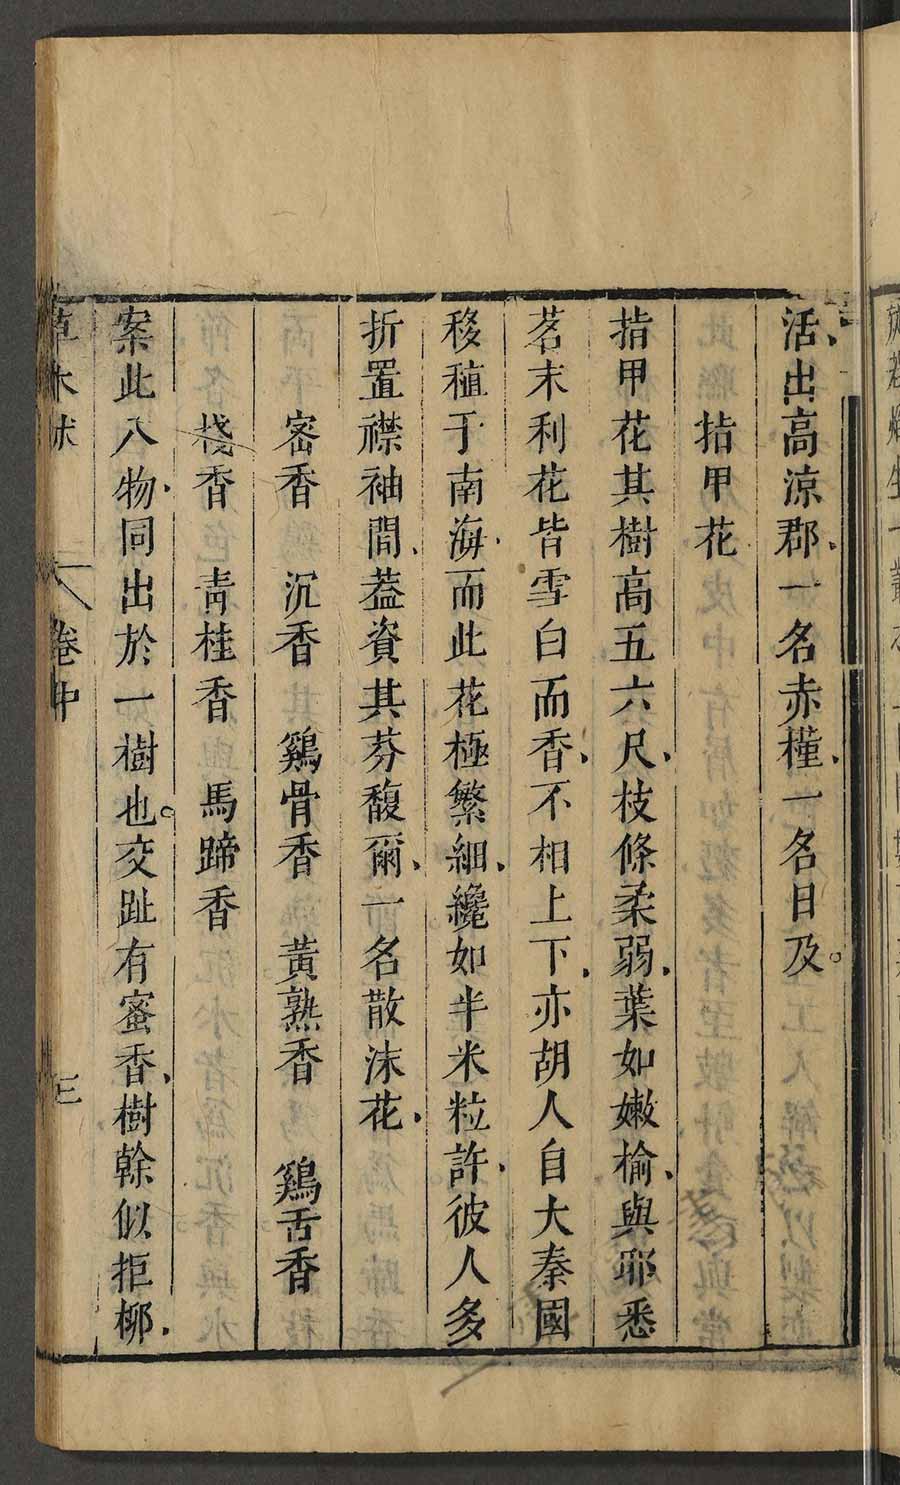 活出高涼郡一名赤槿一名日及
指甲花
指甲花其樹高五六尺枝條柔弱葉如嫩榆與耶悉
茗末利花皆雪白而香不相上下亦胡人自大秦國
移植于南海而此花極繁細纔如半米粒許彼人多
折置襟袖間蓋資其芬馥爾一名散沫花
宻香 沉香 鷄骨香 黃熟香 鷄舌香
棧香 青桂香 馬蹄香
案此八物同出於一樹也交趾有蜜香樹榦似拒栁
草木狀 卷中 三